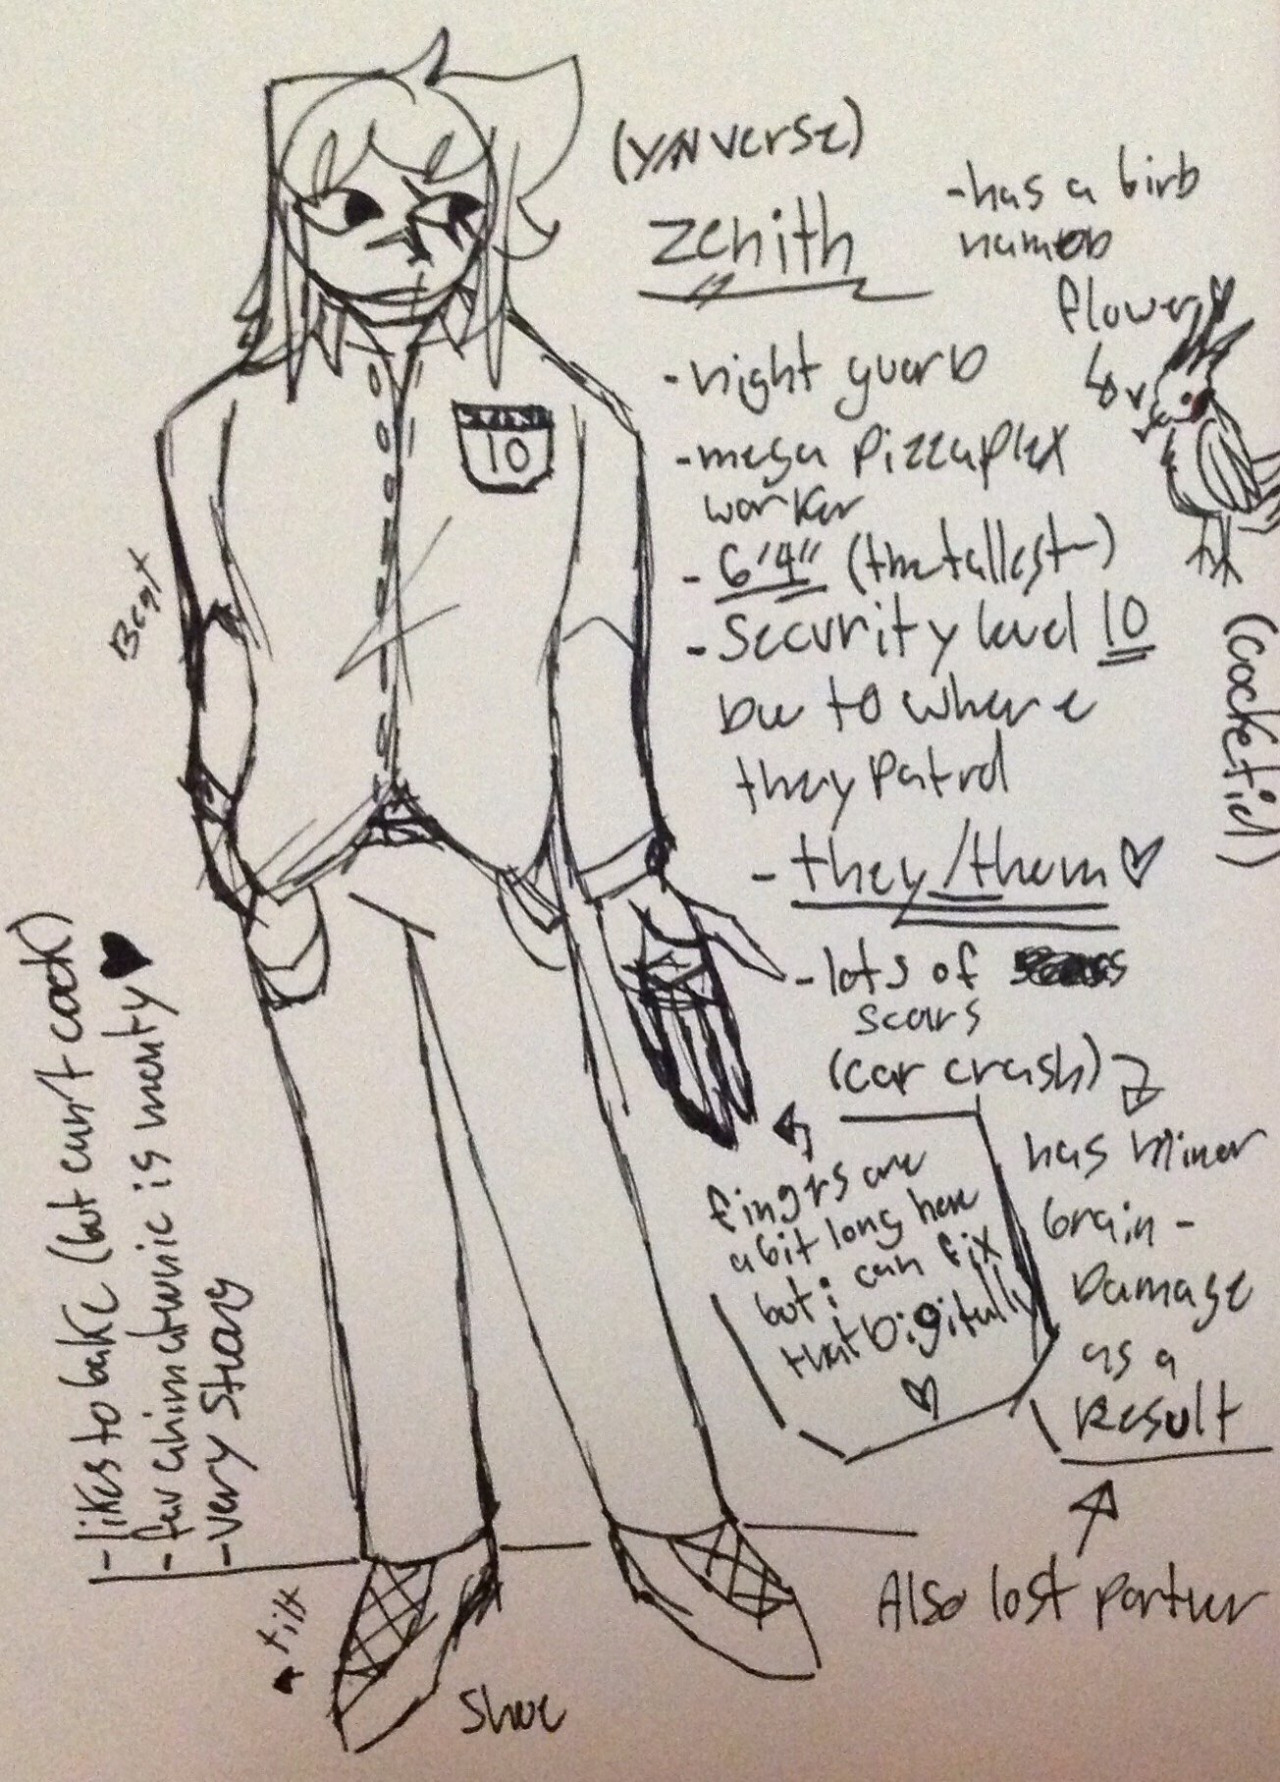 (Y/N verse)
Zenith
-has a birb
named
flower
(cocketiel)
-night guard
-mega Pizzaplex
worker
-6'4" (the tallest)
-Security level 10
due to where
they Patrol
-they/them ♡
-lots of
scars
(car crash)
has minor
brain-
Damage
as a
Result
Also lost partner
fingrs are
a bit long here
but i can fix
that Digitally
♡
10
-likes to bake (but can't cook)
-fav animatronic is monty ♥
-very Strong
tilt
Shoe